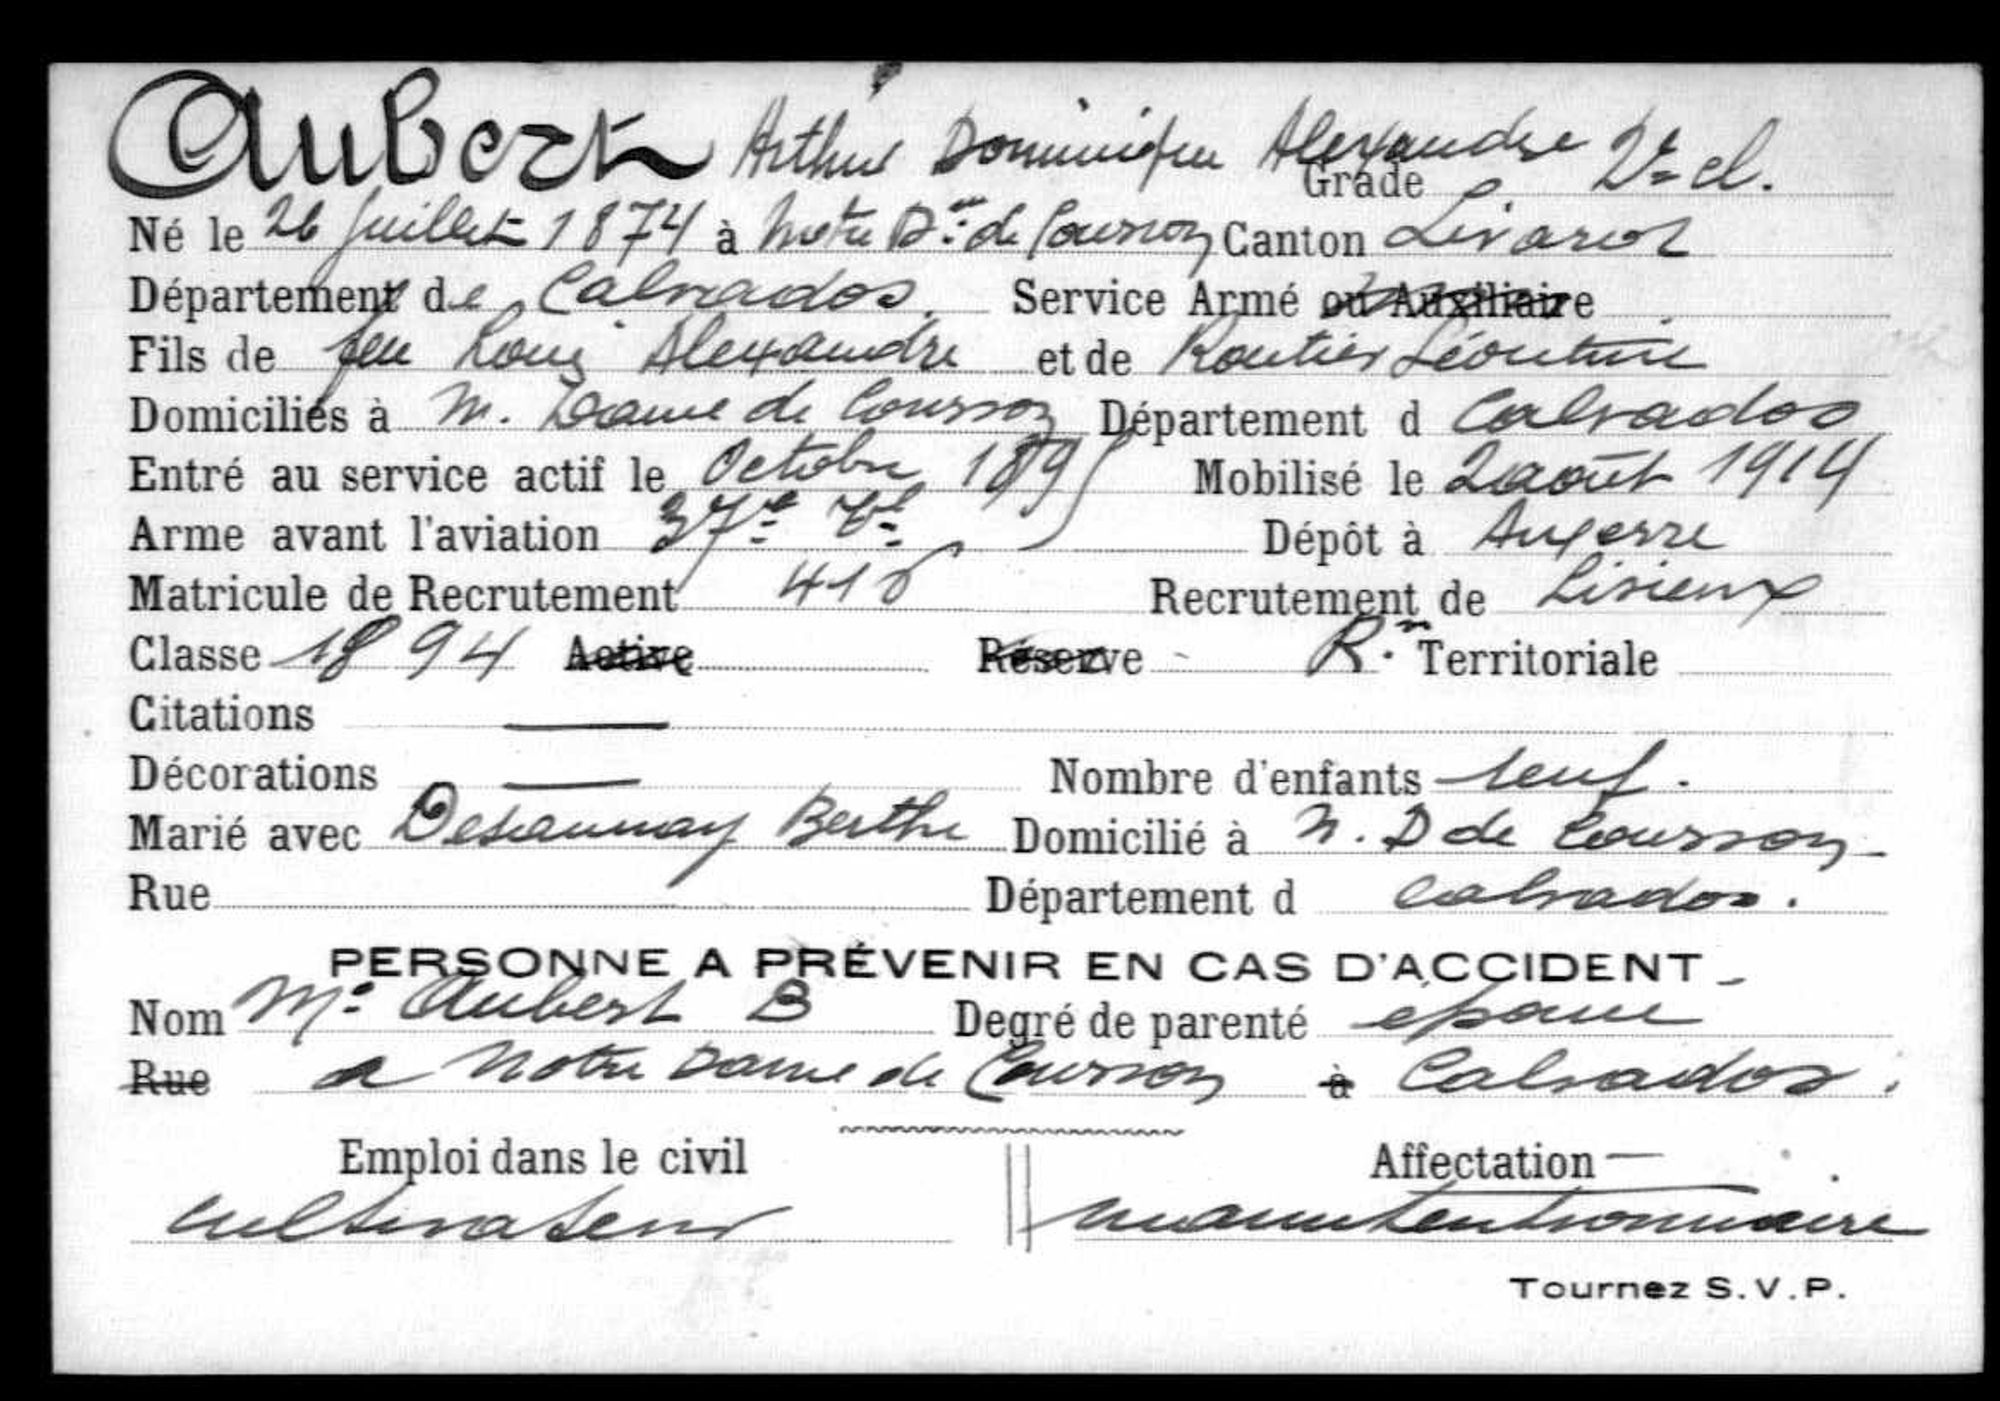 Aubert Arthur Dominique Alexandre Grade 2e cl.
Né le 26 Juillet 1874 à Notre De de Courson Canton Livarot
Département de Calvados. Service Armé ou Auxiliaire
Fils de feu Louis Alexandre et de Routier Léontine
Domiciliés à N. Dame de Courson Département d Calvados
Entré au service actif le Octobre 1895 Mobilisé le 2 août 1914
Arme avant l'aviation 37e Dépôt à Auxerre
Matricule de Recrutement 416 Recrutement de Lisieux
Classe 1894 Active Réserve R. Territoriale
Citations —
Décorations — Nombre d'enfants neuf.
Marié avec Desaunay Berthe Domicilié à N. D de Courson
Rue Département d Calvados.
PERSONNE A PRÉVENIR EN CAS D'ACCIDENT
Nom Me Aubert B Degré de parenté épouse
Rue a Notre Dame de Courson à Calvados.
Emploi dans le civil Affectation
cultivateur manutentionnaire
Tournez S.V.P.